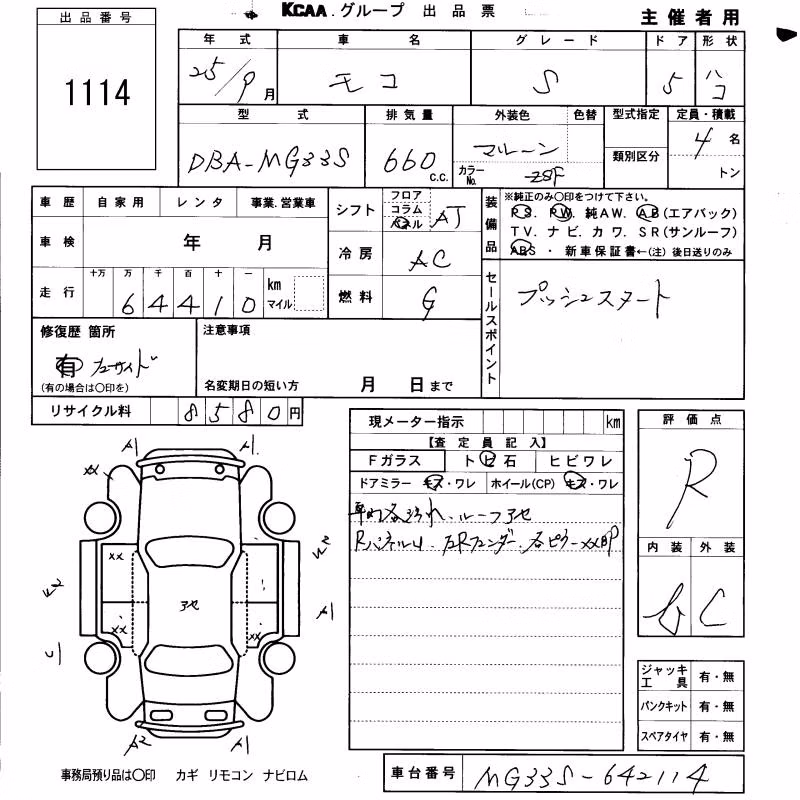 KCAA.グループ 出品票
主催者用
出品番号
1114
年式 車名 グレード ドア 形状
25/9月 モコ S 5 ハコ
型式 排気量 外装色 色替 型式指定 定員・積載
DBA-MG33S 660 c.c. マルーン 類別区分 4名
カラーNo. ZSF トン
車歴 自家用 レンタ 事業.営業車
車検 年 月
走行 十万 万 千 百 十 一 km マイル
6 4 4 1 0
シフト フロア コラム パネル AT
冷房 AC
燃料 G
装備品 ※純正のみ○印をつけて下さい。
P S. P W. 純A W. A B (エアバック)
T V. ナ ビ. カ ワ. S R (サンルーフ)
ABS ・ 新車保証書←(注) 後日送りのみ
セールスポイント プッシュスタート
修復歴 箇所
有
(有の場合は○印を)
注意事項
名変期日の短い方 月 日まで
リサイクル料 8580円
現メーター指示 km
【査定員記入】
Fガラス トビ石 ヒビワレ
ドアミラー キズ・ワレ ホイール(CP) キズ・ワレ
ルーフアセ
評価点
R
内装 外装
C
A1 A1
XX
XX
アセ
XX XX
A1
A2 A1
ジャッキ工具 有・無
パンクキット 有・無
スペアタイヤ 有・無
事務局預り品は○印 カギ リモコン ナビロム
車台番号 MG33S-642114